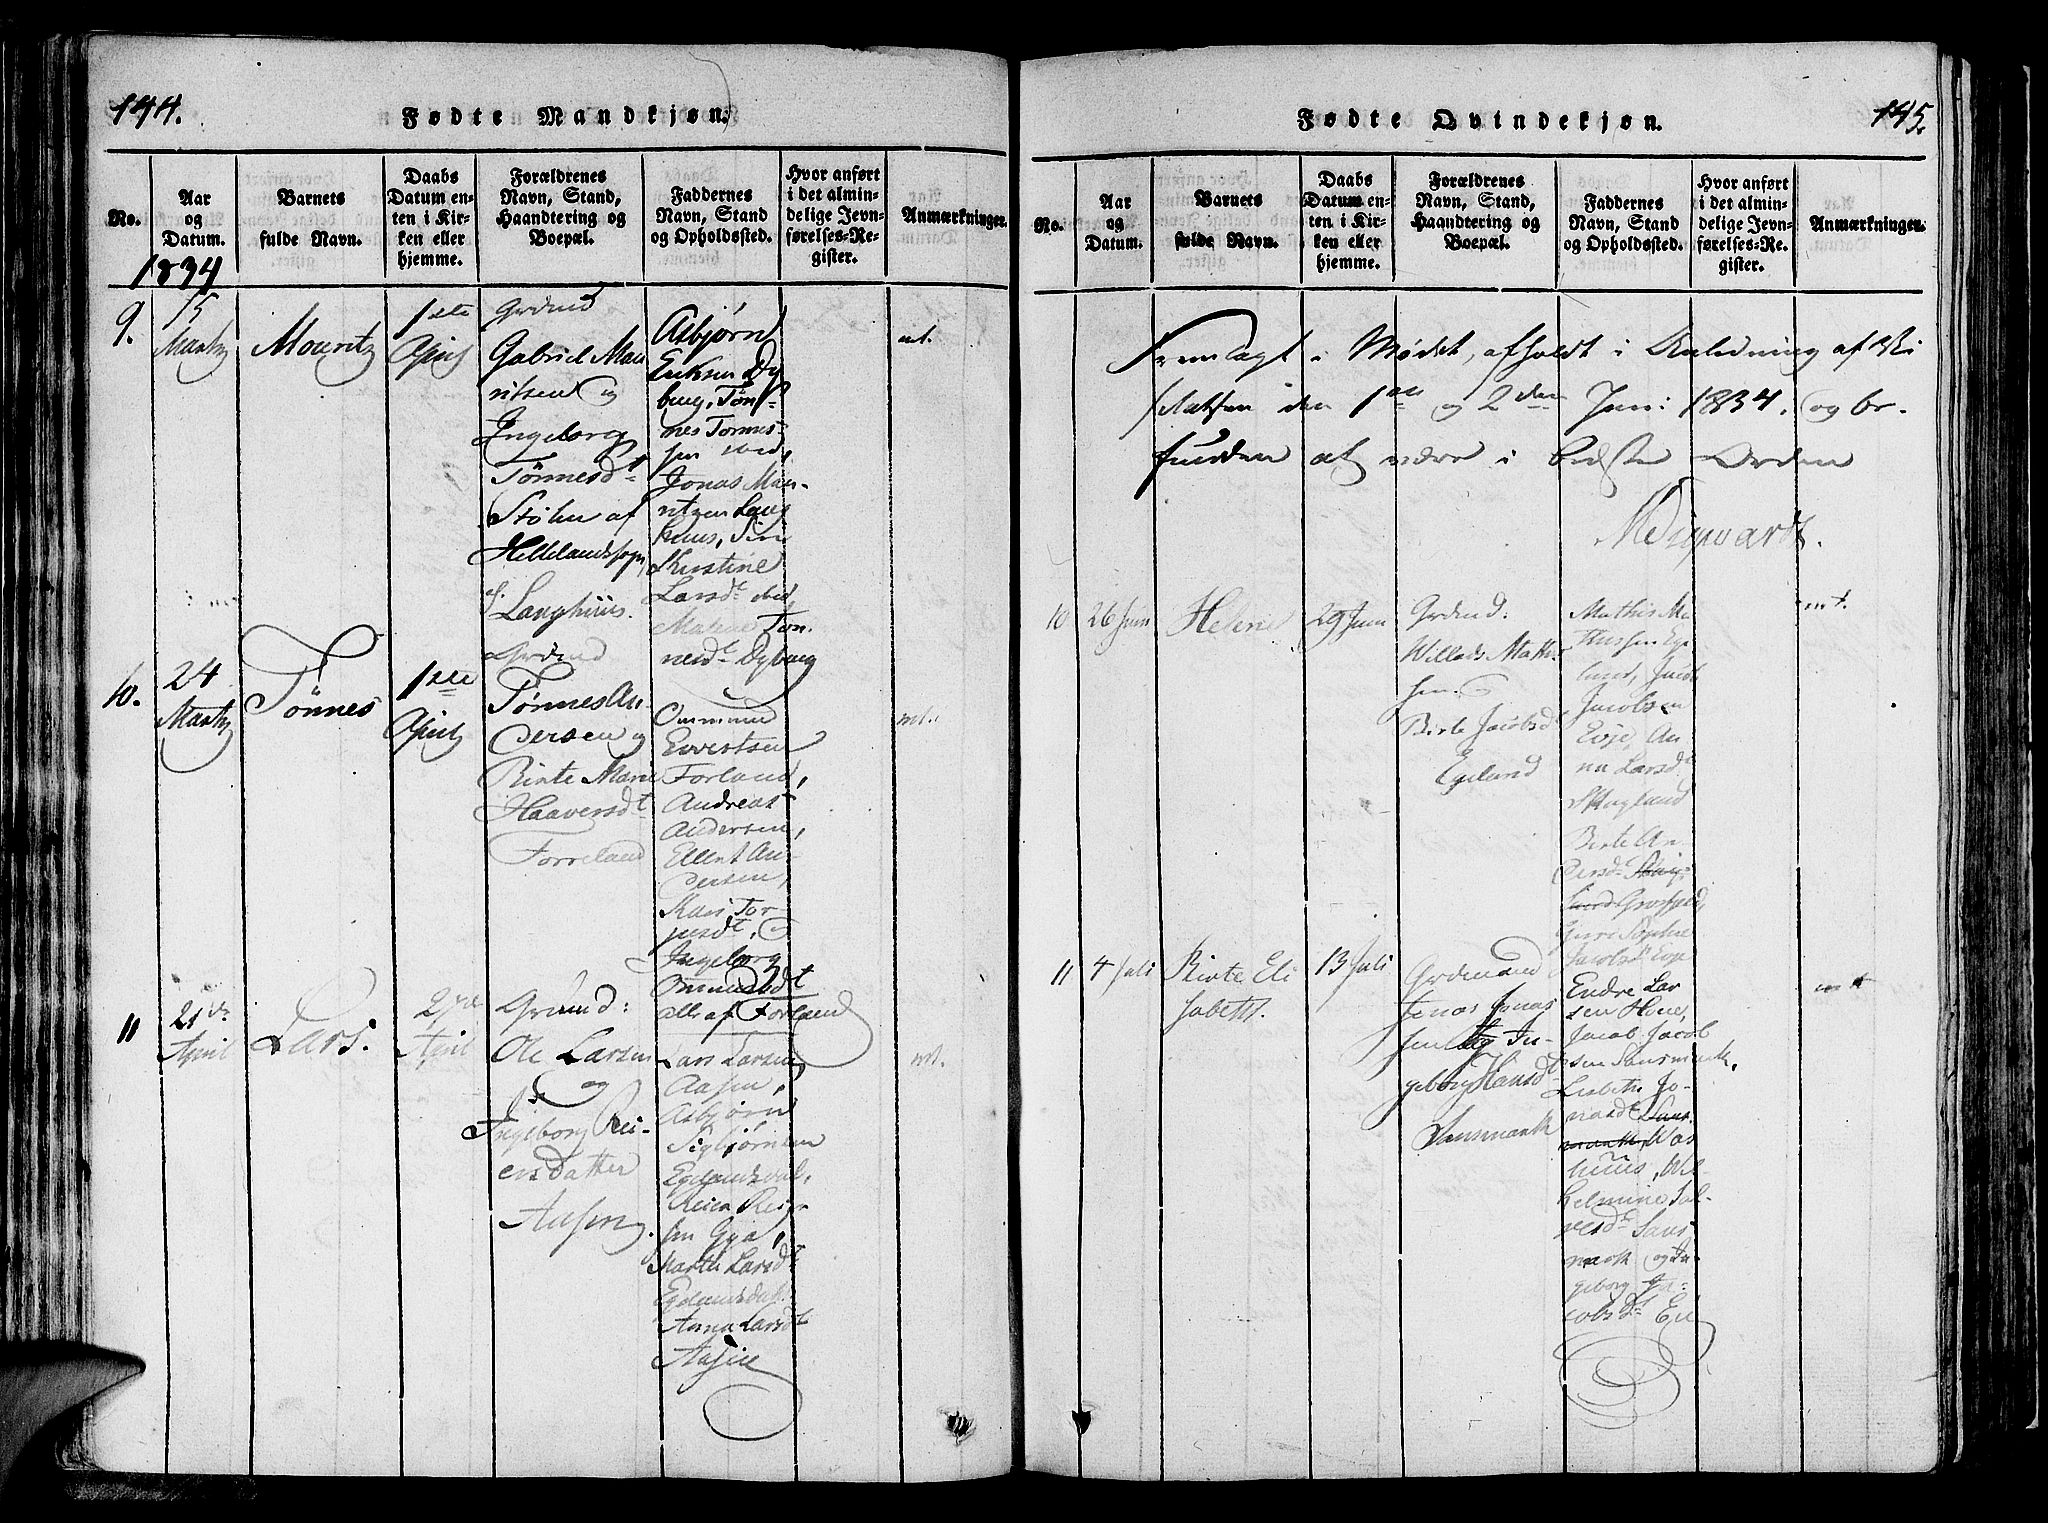 144.
Fødte Mandkjøn.
No.
Aar
og
Datum.
Barnets
fulde Navn.
Daabs
Datum en-
ten i Kir-
ken eller
hjemme.
Forældrenes
Navn, Stand,
Haandtering og
Boepæl.
Faddernes
Navn, Stand
og Opholdssted.
Hvor anført
i det almin-
delige Jevn-
førelses-Re-
gister.
Anmærkninger.
1834
9.
15
Martz
Mouritz
1ste
April
Grdmd
Gabriel Mau
ritsen og
Ingeborg
Tønnesdt
Stølen af
Hellelandssogn,
Langhuus.
Asbjørn
Eriksen Dy
burg, Tøn-
nes Tønnes-
sen ibid,
Jonas Mau-
ritzen Lang
huus,
Kirstine
Larsdt ibid
Malene Tøn
nesdt Dyburg
nt.
10.
24
Martz
Tønnes
1ste
April
Grdmd
Tønnes An
dersen og
Birte Marie
Haaversdt
Forreland
Ommund
Evertsen
Forland,
Andreas
Andersen,
Ellent An-
dersen,
Kari Tor-
jusdt, &
Ingeborg
Ommundsdt
alle af Forland
nt.
11
21de
April
Lars.
27de
April
Grdmd:
Ole Larsen
og
Ingeborg Rei-
ersdatter
Aasen.
Lars Larsen
Aasen,
Asbjørn
Sigbjørnsen
Egelandsdal,
Reier Reier
sen Gya,
Marthe Larsdt
Egelandsdal
Anna Larsdt
Aasen
nt.
145.
Fødte Qvindekjøn.
No.
Aar
og
Datum.
Barnets
fulde Navn.
Daabs
Datum en-
ten i Kir-
ken eller
hjemme.
Forældrenes
Navn, Stand,
Haandtering og
Boepæl.
Faddernes
Navn, Stand
og Opholdssted.
Hvor anført
i det almin-
delige Jevn-
førelses-Re-
gister.
Anmærkninger.
Fremlagt i Mødet, afholdt i Anledning af Vi
sitatsen den 1ste og 2den Juni 1834. og be-
funden at være i bedste Orden
10
26 Juni
Helene
29 Juni
Grdmd:
Willads Mathi
sen &
Birte Jacobsdt
Egeland
Mathis Ma
thissen Ege
land,
Jacobsen
Eeje, An
na Larsdt
Skagland
Birte An
dersdt
Jacobsdt
nt.
11
4 Juli
Birte Eli
sabeth.
13 Juli
Grdmand
Jonas Jonas
sen og In-
geborg Hansdt
Sansmark
Endre Lar
sen Hove,
Jacob Jacob
sen Sansmark,
Lisbeth Jo-
nasdt Sans-
mark, Vas
huus, Wil-
helmine Sal-
vesdt Sans
mark og In-
geborg Ja-
cobsdt Eie
nt